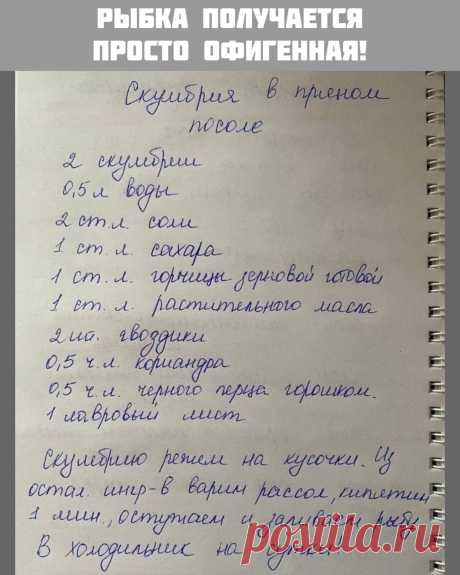 РЫБКА ПОЛУЧАЕТСЯ
ПРОСТО ОФИГЕННАЯ!
Скумбрия в пряном
посоле
2 скумбрии
0,5 л воды
2 ст. л. соли
1 ст. л. сахара
1 ст. л. горчицы зерновой готовой
1 ст. л. растительного масла
2 шт. гвоздики
0,5 ч. л. кориандра
0,5 ч. л. черного перца горошком.
1 лавровый лист
Скумбрию режем на кусочки. Из
остал. ингр-в варим рассол, кипятим
1 мин., остужаем и заливаем рыбу.
В холодильник на сутки.
postila.ru